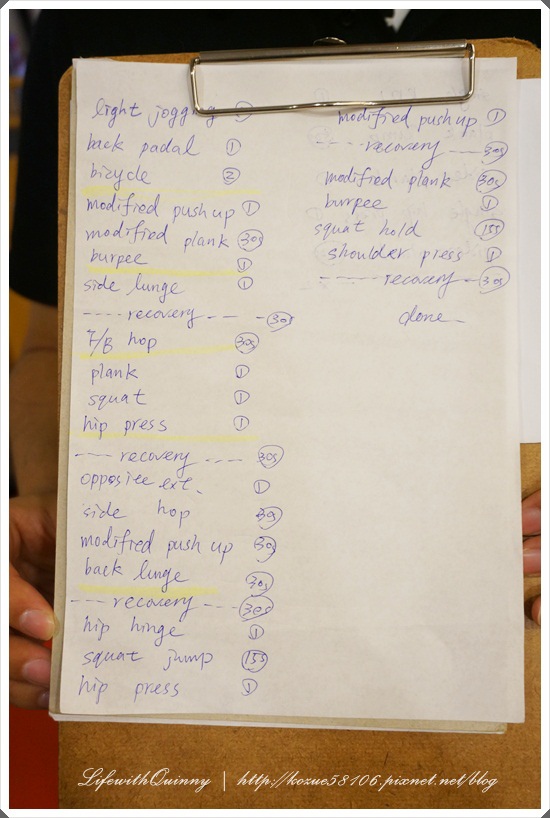 light jogging ①
back padal ①
bicycle ②
modified push up ①
modified plank 30s
burpee ①
side lunge ①
---- recovery --- - 30s
F/B hop 30s
plank ①
squat ①
hip press ①
--- recovery --- 30s
opposite ext. ①
side hop 30s
modified push up 30s
back lunge 30s
--- recovery --- 30s
hip hinge ①
squat jump 15s
hip press ①
modified push up ①
---- recovery --- 30s
modified plank 30s
burpee ①
squat hold 15s
shoulder press ①
---- recovery -- 30s
done
LifewithQuinny | http://kozue58106.pixnet.net/blog